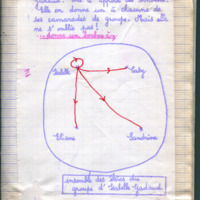 Elle en donne un à chacune de
ses camarades de groupe. Mais elle
ne s'oublie pas !
"donne un bonbon à"
Isabelle
Gaby
Eliane
Sandrine
ensemble des élèves du
groupe d'Isabelle